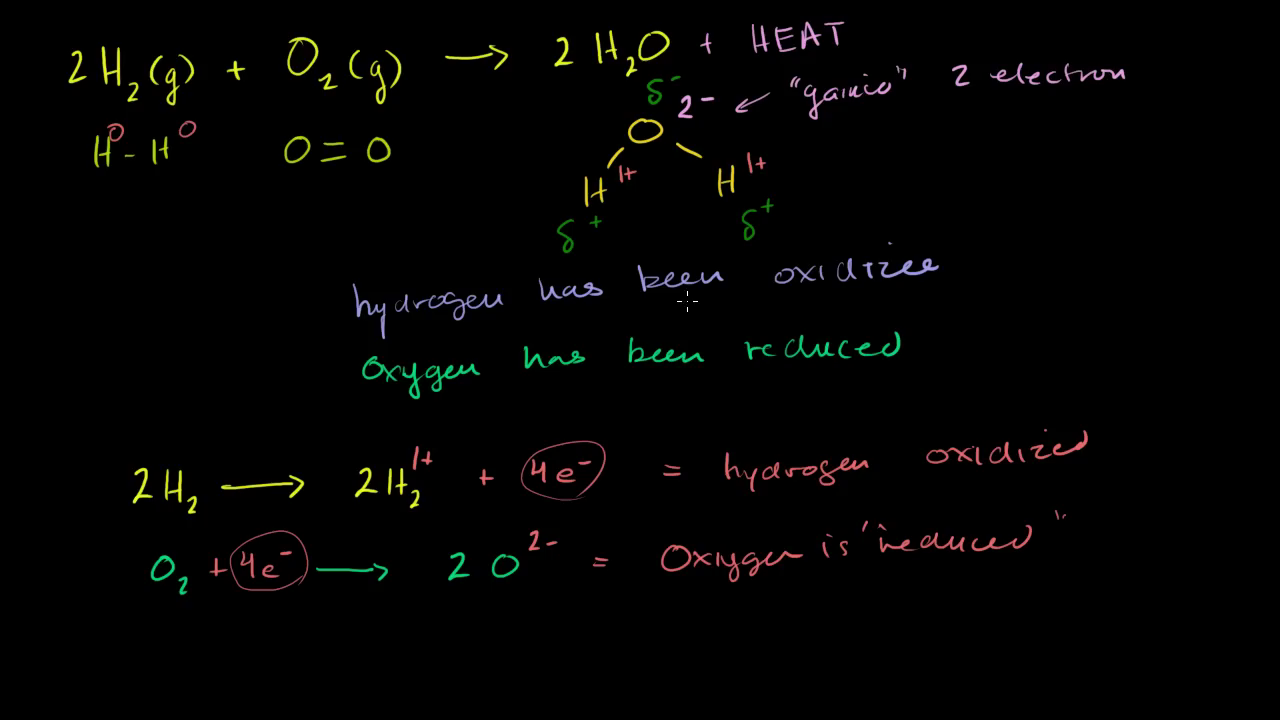 2H₂(g) + O₂(g) → 2H₂O + HEAT
δ⁻ 2- ← "gained" 2 electron
H⁰-H⁰ O=O O
H 1+ H 1+
δ⁺ δ⁺
hydrogen has been oxidized
oxygen has been reduced
2H₂ → 2H₂¹⁺ + 4e⁻ = hydrogen oxidized
O₂ + 4e⁻ → 2O²⁻ = Oxygen is "reduced"